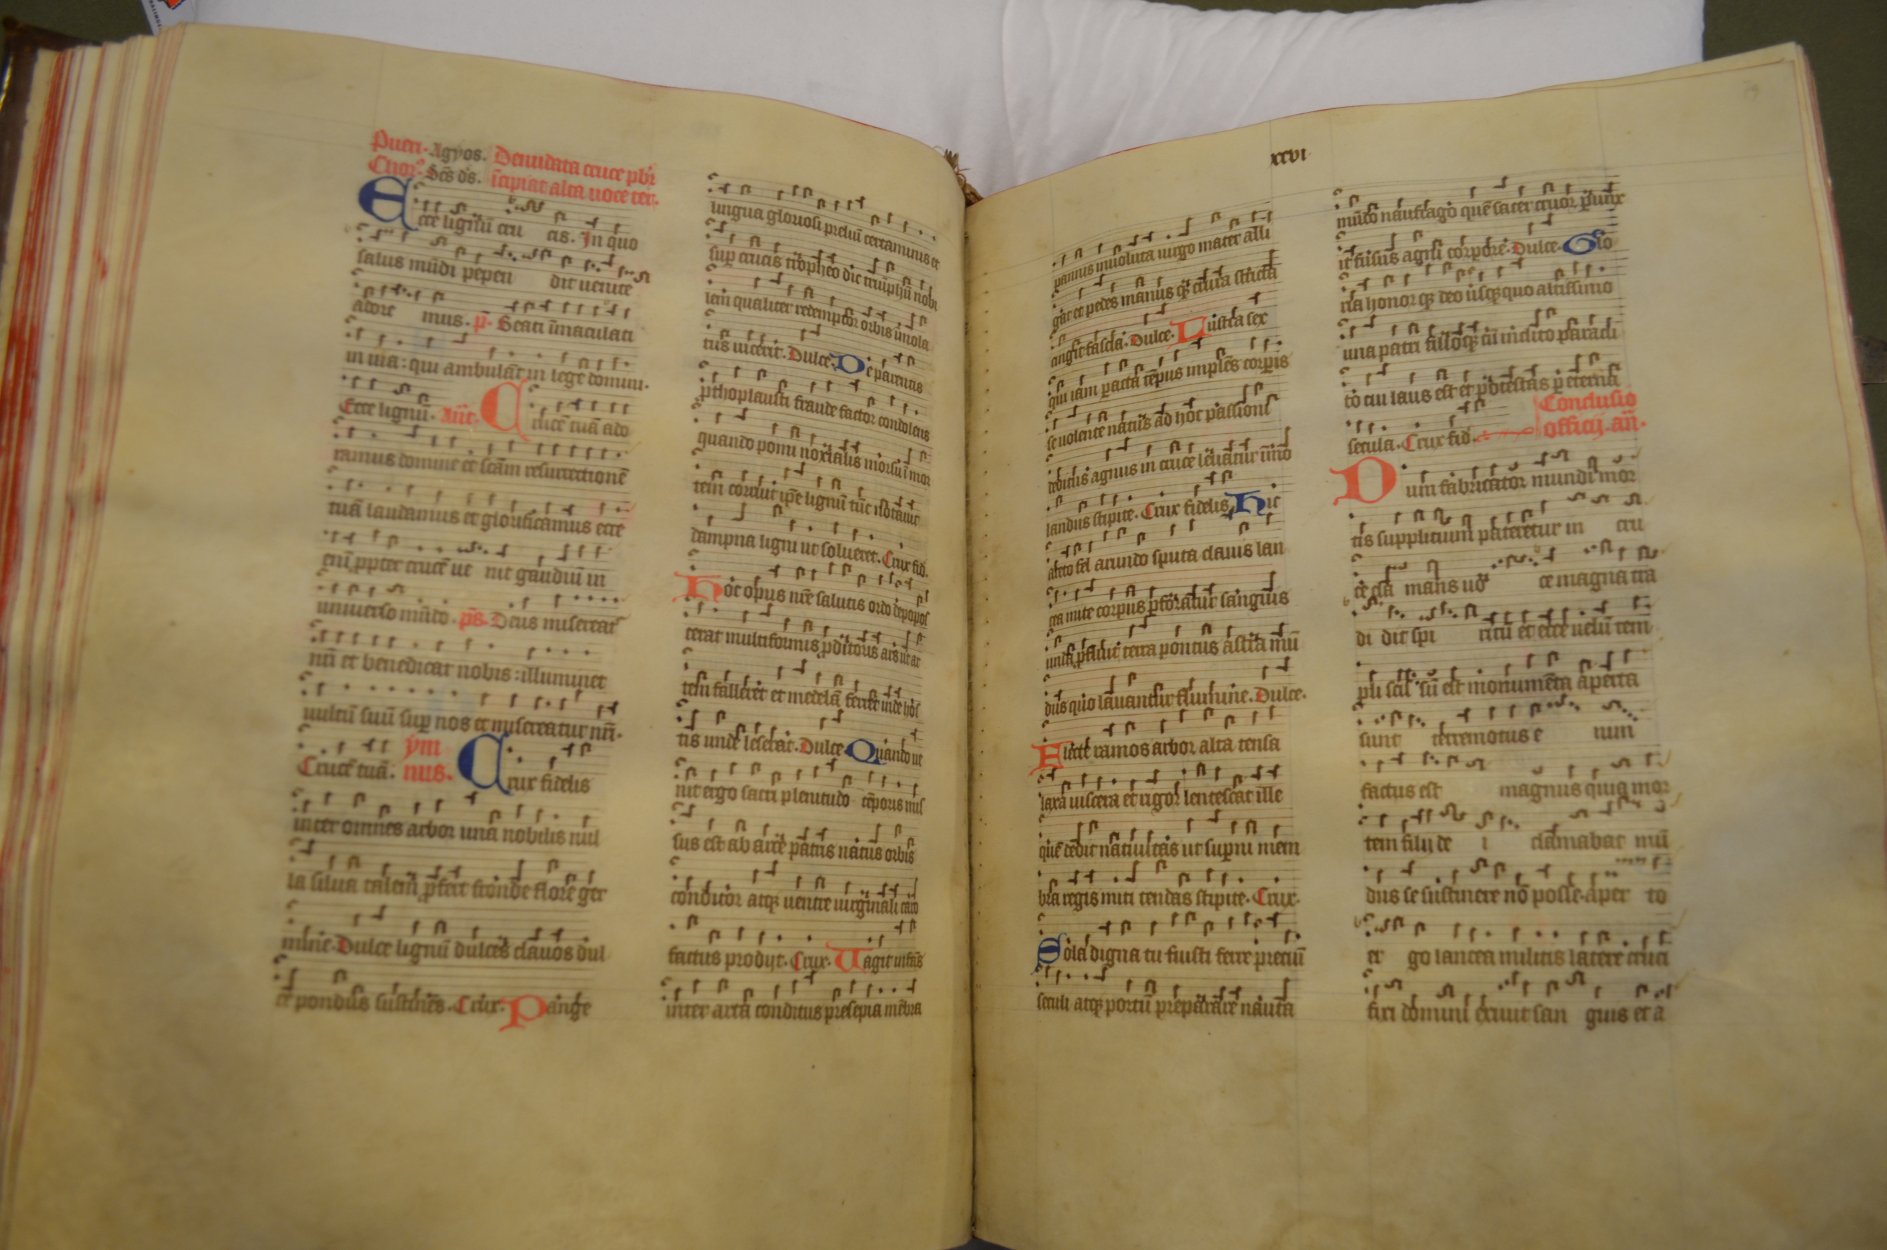 Pueri. Agyos. Denudata cruce pbr
Chor⁹ Scs ds. icipiat alta uoce ter.
Ecce lignū cru cis. In quo
salus mūdi pepen dit uenite
adore mus. p̄. Beati īmaculati
in uia: qui ambulāt in lege domini.
Ecce lignū. Añt. Crucē tuā ado
ramus domine et scām resurrectionē
tuā laudamus et glorificamus ecce
enī ppter crucē ue nit gaudiū in
uniuerso mūdo. ps. Deus misereat
nr̄i et benedicat nobis: illuminet
uultū suū sup nos et misereatur nr̄i.
Crucē tuā. ym
nus. Crux fidelis
inter omnes arbor una nobilis nul
la silua talem pfert fronde flore ger
mine. Dulce lignū dulces clauos dul
ce pondus sustines. Crux. Pange
lingua gloriosi preliū certaminis et
sup crucis tropheo dic triūphū nobi
lem qualiter redemptor orbis īmola
tus uicerit. Dulce. De parentis
pthoplausti fraude factor condolens
quando pomi noxialis morsu ī mor
tem corruit ipe lignū tūc notauit
dampna ligni ut solueret. Crux fid.
Hoc opus nre salutis ordo depopos
cerat multiformis pditoris ars ut ar
tem falleret et medelā ferret inde hos
tis unde leserat. Dulce. Quando ue
nit ergo sacri plenitudo tēporis mis
sus est ab arce patris natus orbis
conditor atq; uentre uirginali caro
factus prodijt. Crux. Uagit infans
inter arta conditus presepia mēbra
xxvi
79
pannis inuoluta uirgo mater alli
gat et pedes manus q; crura stricta
cingit fascia. Dulce. Lustra sex
qui iam pacta tēpus implēs corpis
se uolente natus ad hoc passioni
deditus agnus in cruce leuatur īmo
landus stipite. Crux fidelis. Hic
aceto fel arundo sputa clauis lan
cea mite corpus pforatur sanguis
unda pfluit terra pontus astra mū
dus quo lauantur flumine. Dulce.
Flecte ramos arbor alta tensa
laxa uiscera et rigor lentescat ille
quē dedit natiuitas ut supni mem
bra regis miti tendas stipite. Crux.
Sola digna tu fuisti ferre preciū
seculi atq; portū preparare nauta
mūdo naufrago quē sacer cruor punx
it fusus agni corpore. Dulce. Glo
ria honor q; deo usq;quo altissimo
una patri filioq; cū inclito paracli
to cui laus est et potestas p eterna
secula. Crux fid. Conclusio
officij. añ.
Dum fabricator mundi mor
tis supplicium pateretur in cru
ce cla mans uo ce magna tra
di dit spi ritū et ecce uelū tem
pli scis sū est monumēta aperta
sunt terremotus e nim
factus est magnus quia mor
tem filij de i clamabat mū
dus se sustinere nō posse. Aper to
er go lancea militis latere cruci
fixi domini exiuit san guis et a